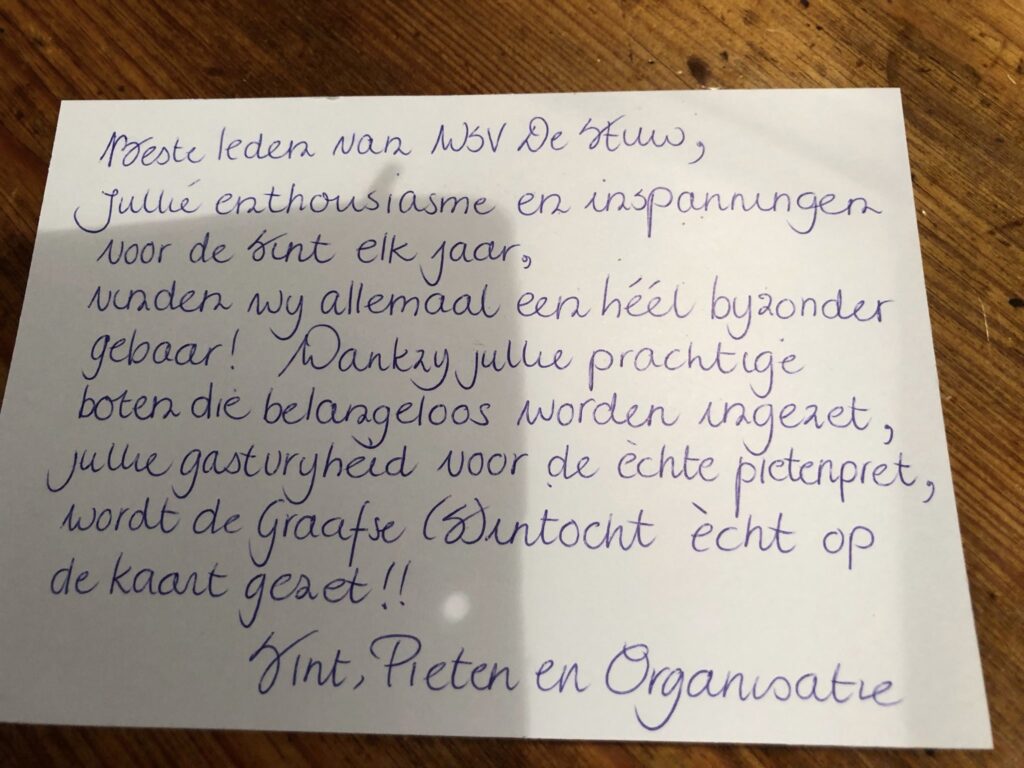 Beste leden van WSV De Stuw,
Jullie enthousiasme en inspanningen
voor de Sint elk jaar,
vinden wy allemaal een héél byzonder
gebaar! Dankzy jullie prachtige
boten die belangeloos worden ingezet,
jullie gastvryheid voor de èchte pietenpret,
wordt de Graafse (S)intocht ècht op
de kaart gezet!!
Sint, Pieten en Organisatie